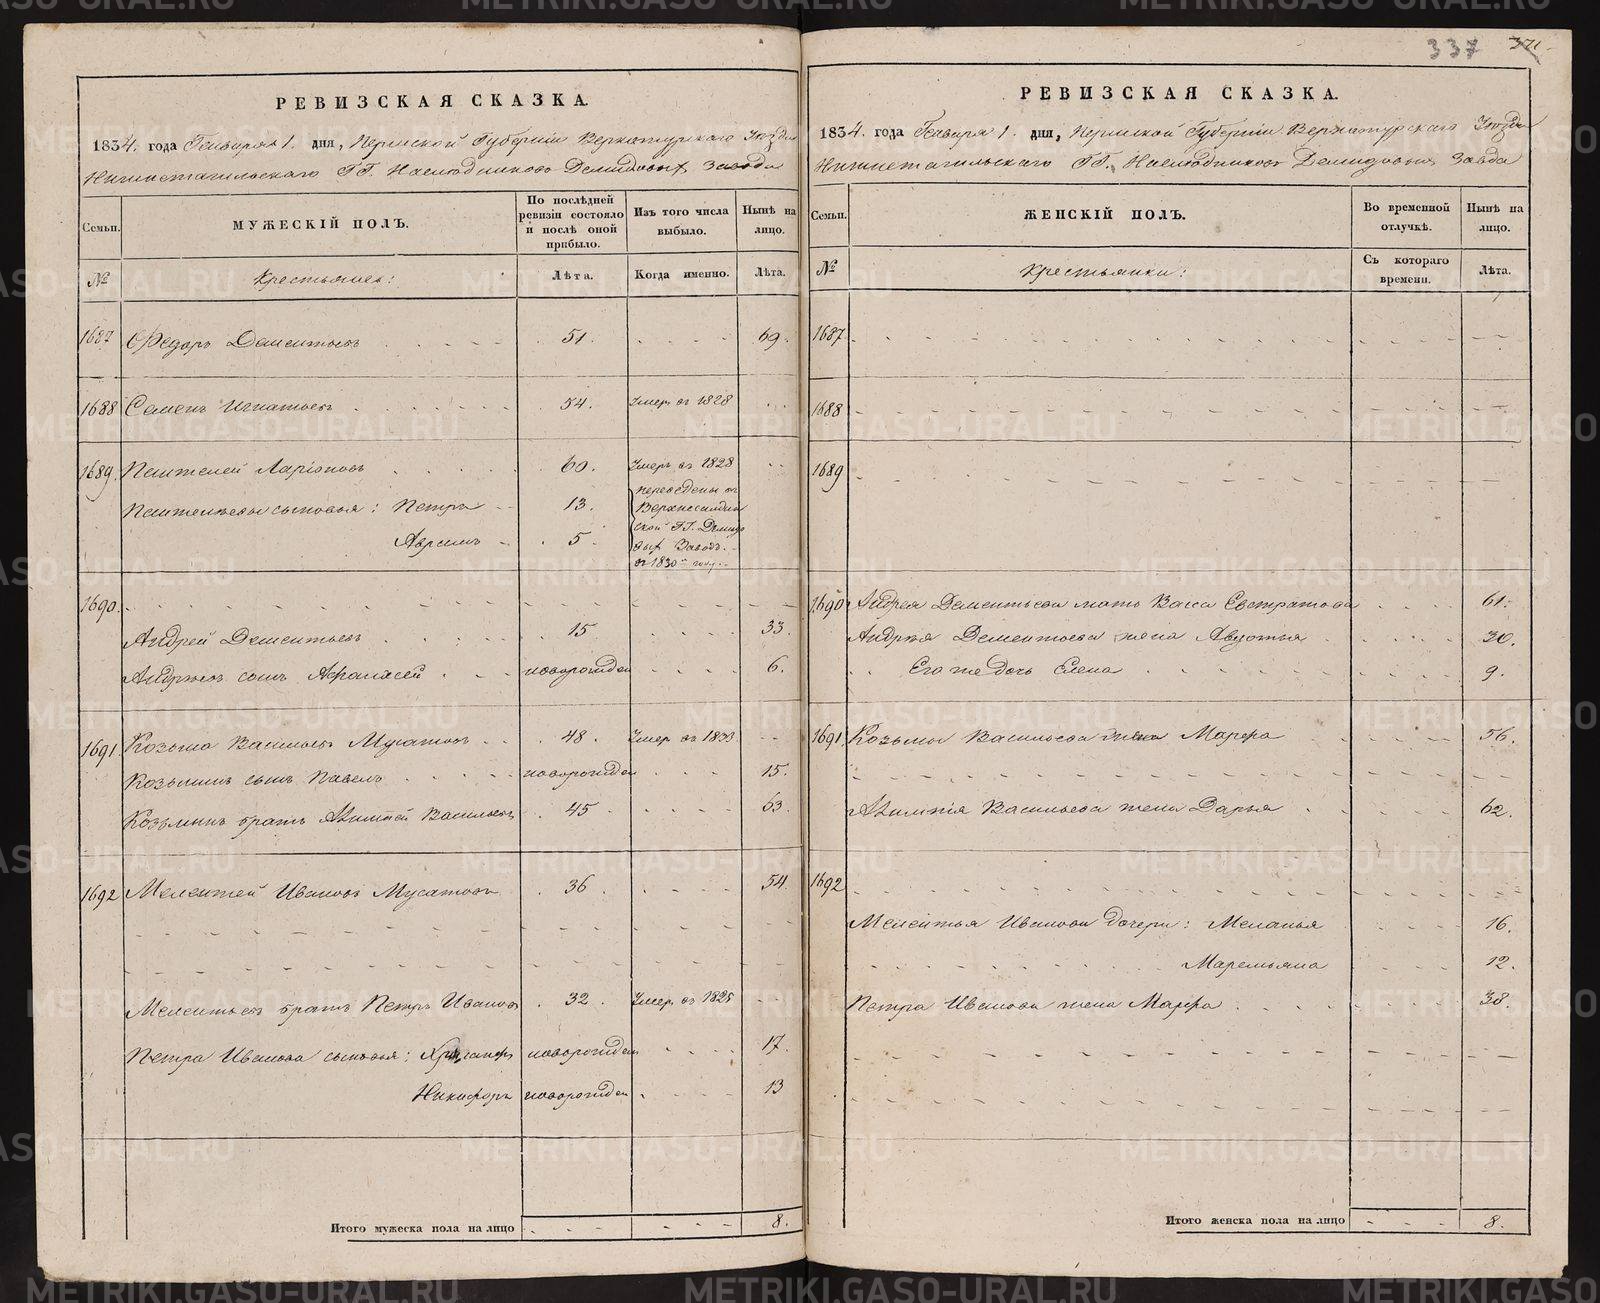 337
РЕВИЗСКАЯ СКАЗКА.
1834. года Генваря 1. дня, Пермской Губернiи Верхотурскаго Уѣзда
Нижнетагильскаго ГГ. Наслѣдниковъ Демидовыхъ Завода
Семьи.
МУЖЕСКІЙ ПОЛЪ.
По послѣдней ревизіи состояло и послѣ оной прибыло.
Изъ того числа выбыло.
Нынѣ на лицо.
№
Крестьянъ:
Лѣта.
Когда именно.
Лѣта.
1687 Федоръ Дементьевъ 51. 69.
1688 Семенъ Игнатьевъ 54. Умер. въ 1828
1689. Пантелей Ларіоновъ 60. Умеръ въ 1828
Пантелѣевы сыновья: Петръ 13. переведены въ
Верхнесалдин
ской ГГ. Демидо
Авраамъ 5. выхъ Заводъ
въ 1830 м году
1690.
Андрей Дементьевъ 15 33.
Андреевъ сынъ Афанасей новорожден 6.
1691. Козьма Васильевъ Мусатовъ 48. Умер въ 1833
Козьминъ сынъ Павелъ новорожден 15.
Козьминъ братъ Васильевъ 45 63.
1692 Мелентей Ивановъ Мусатовъ 36 54.
Мелентьевъ братъ Петръ Ивановъ 32. Умер. въ 1825
Петра Иванова сыновья: новорожден 17.
Никифоръ новорожден 13
Итого мужеска пола на лицо 8.
РЕВИЗСКАЯ СКАЗКА.
1834. года Генваря 1. дня, Пермской Губернiи Верхотурскаго Уѣзда
Нижнетагильскаго ГГ. Наслѣдниковъ Демидовыхъ Завода
Семьи.
ЖЕНСКІЙ ПОЛЪ.
Во временной отлучкѣ.
Нынѣ на лицо.
№
Крестьянки:
Съ котораго времени.
Лѣта.
1687
1688
1689
1690 Андрея Дементьева мать Васса Евстратова 61.
Андрея Дементьева жена Авдотья 30.
Его же дочь Елена 9.
1691 Козьмы Васильева жена Марфа 56.
Васильева жена Дарья 62.
1692
Мелентья Иванова дочери: Меланья 16.
Маремьяна 12.
Петра Иванова жена Марфа 38.
Итого женска пола на лицо 8.
METRIKI.GASO-URAL.RU